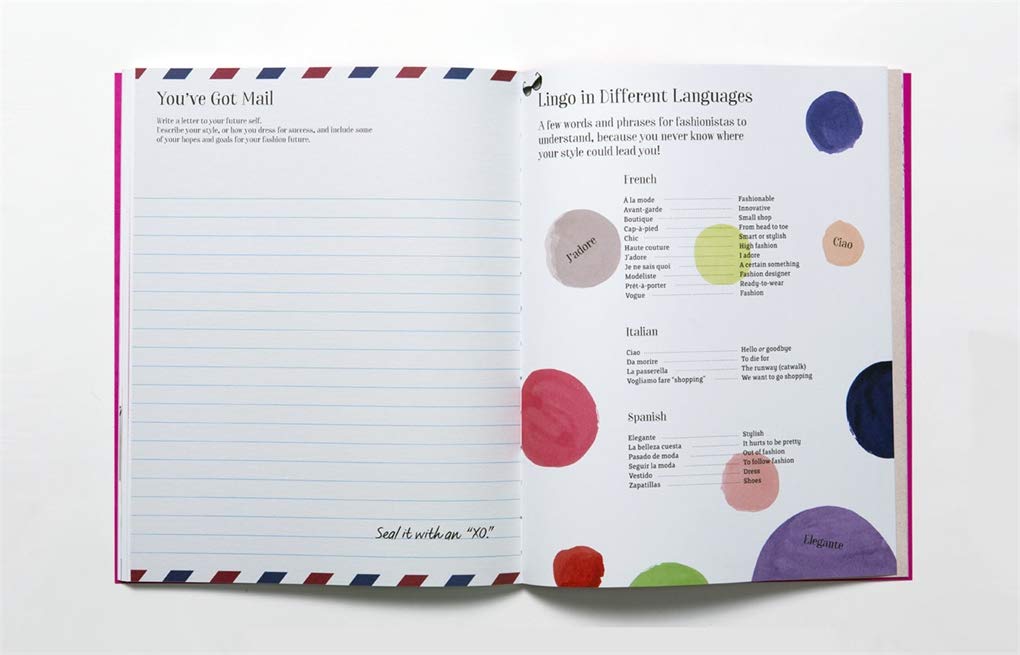 You've Got Mail
Write a letter to your future self.
Describe your style, or how you dress for success, and include some
of your hopes and goals for your fashion future.
Seal it with an "XO."
Lingo in Different Languages
A few words and phrases for fashionistas to
understand, because you never know where
your style could lead you!
French
À la mode Fashionable
Avant-garde Innovative
Boutique Small shop
Cap-à-pied From head to toe
Chic Smart or stylish
Haute couture High fashion
J'adore I adore
Je ne sais quoi A certain something
Modéliste Fashion designer
Prêt-à-porter Ready-to-wear
Vogue Fashion
J'adore
Ciao
Italian
Ciao Hello or goodbye
Da morire To die for
La passerella The runway (catwalk)
Vogliamo fare "shopping" We want to go shopping
Spanish
Elegante Stylish
La belleza cuesta It hurts to be pretty
Pasado de moda Out of fashion
Seguir la moda To follow fashion
Vestido Dress
Zapatillas Shoes
Elegante